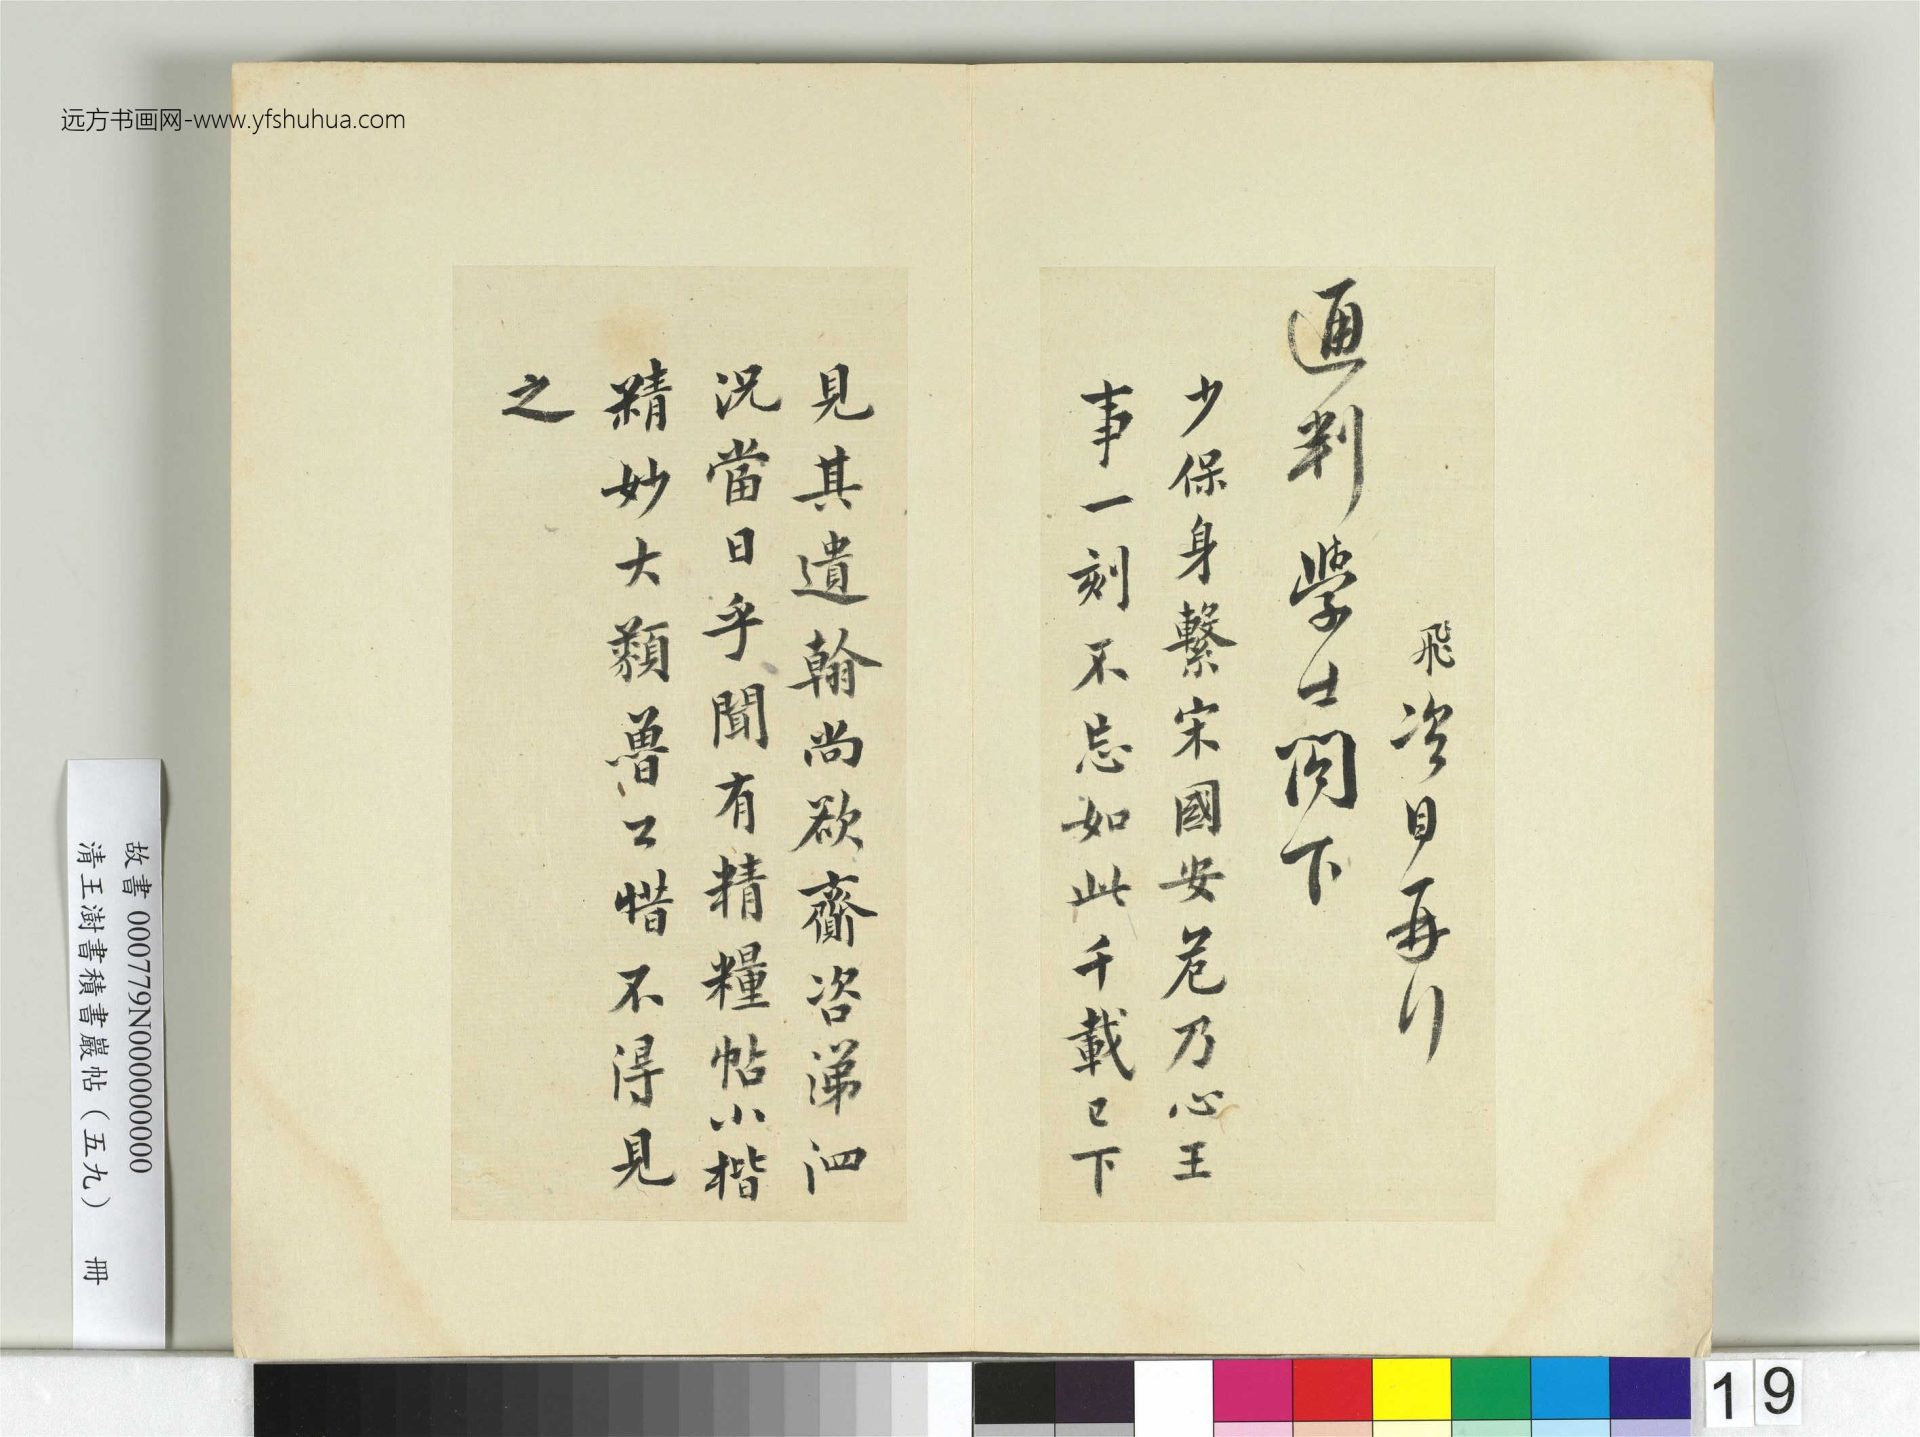 远方书画网-www.yfshuhua.com
飛咨目再行
通判學士閣下
少保身繫宋國安危乃心王
事一刻不忘如此千載已下
見其遺翰尚欲齎咨涕泗
況當日乎聞有精糧帖小楷
精妙大類魯公惜不得見
之
故書 000779N000000000
清王澍書積書巖帖（五九） 冊
19